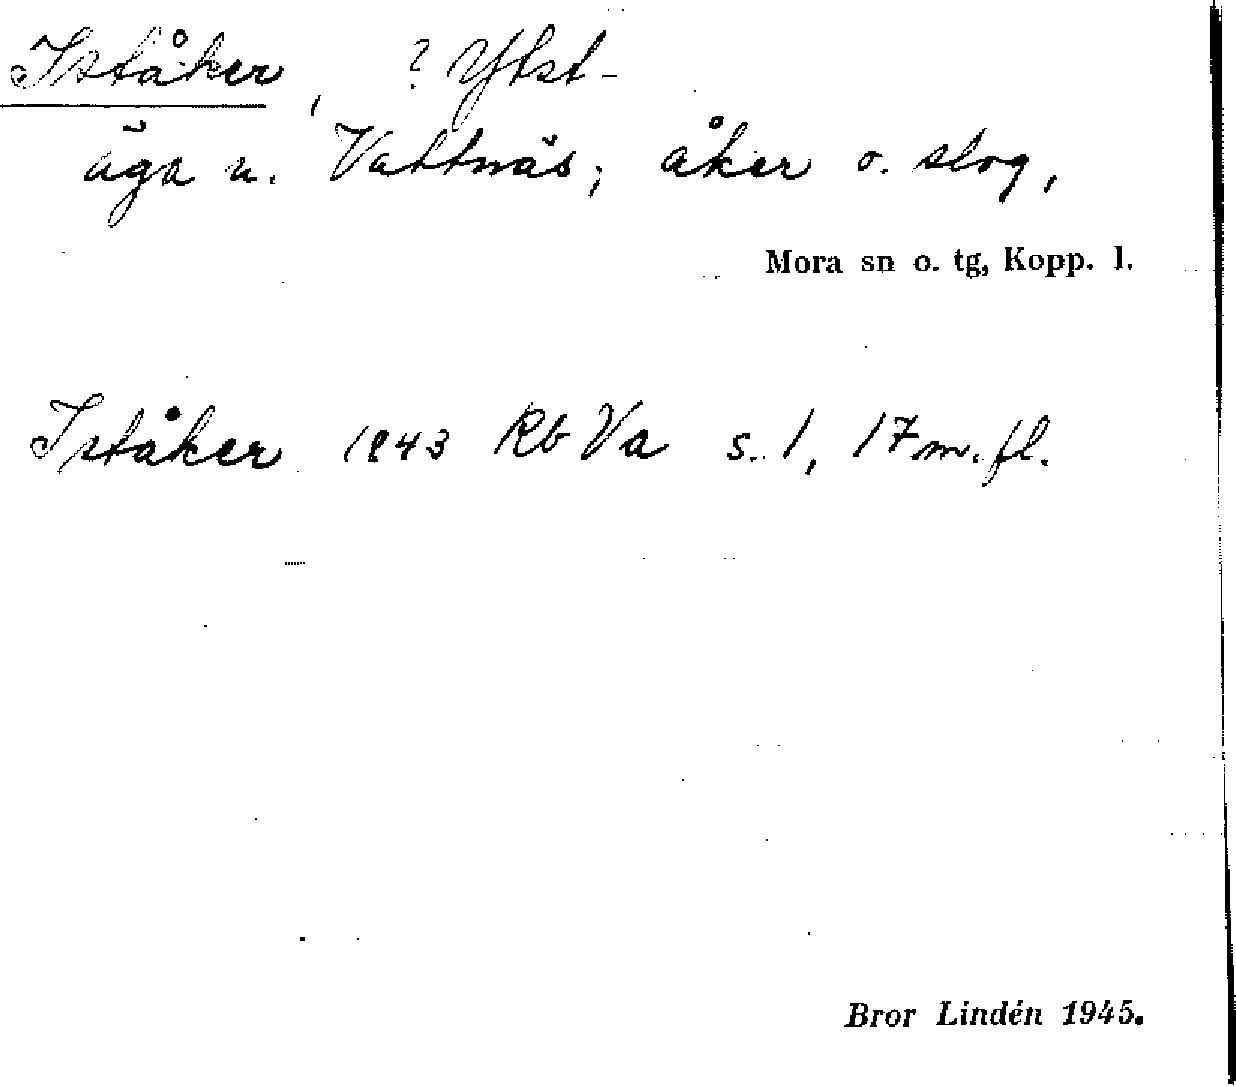 Iståker, ? Ytst-
äga u. Vattnäs; åker o. slog,
Mora sn o. tg, Kopp. l.
Iståker 1843 Rb Va s. 1, 17 m. fl.
Bror Lindén 1945.